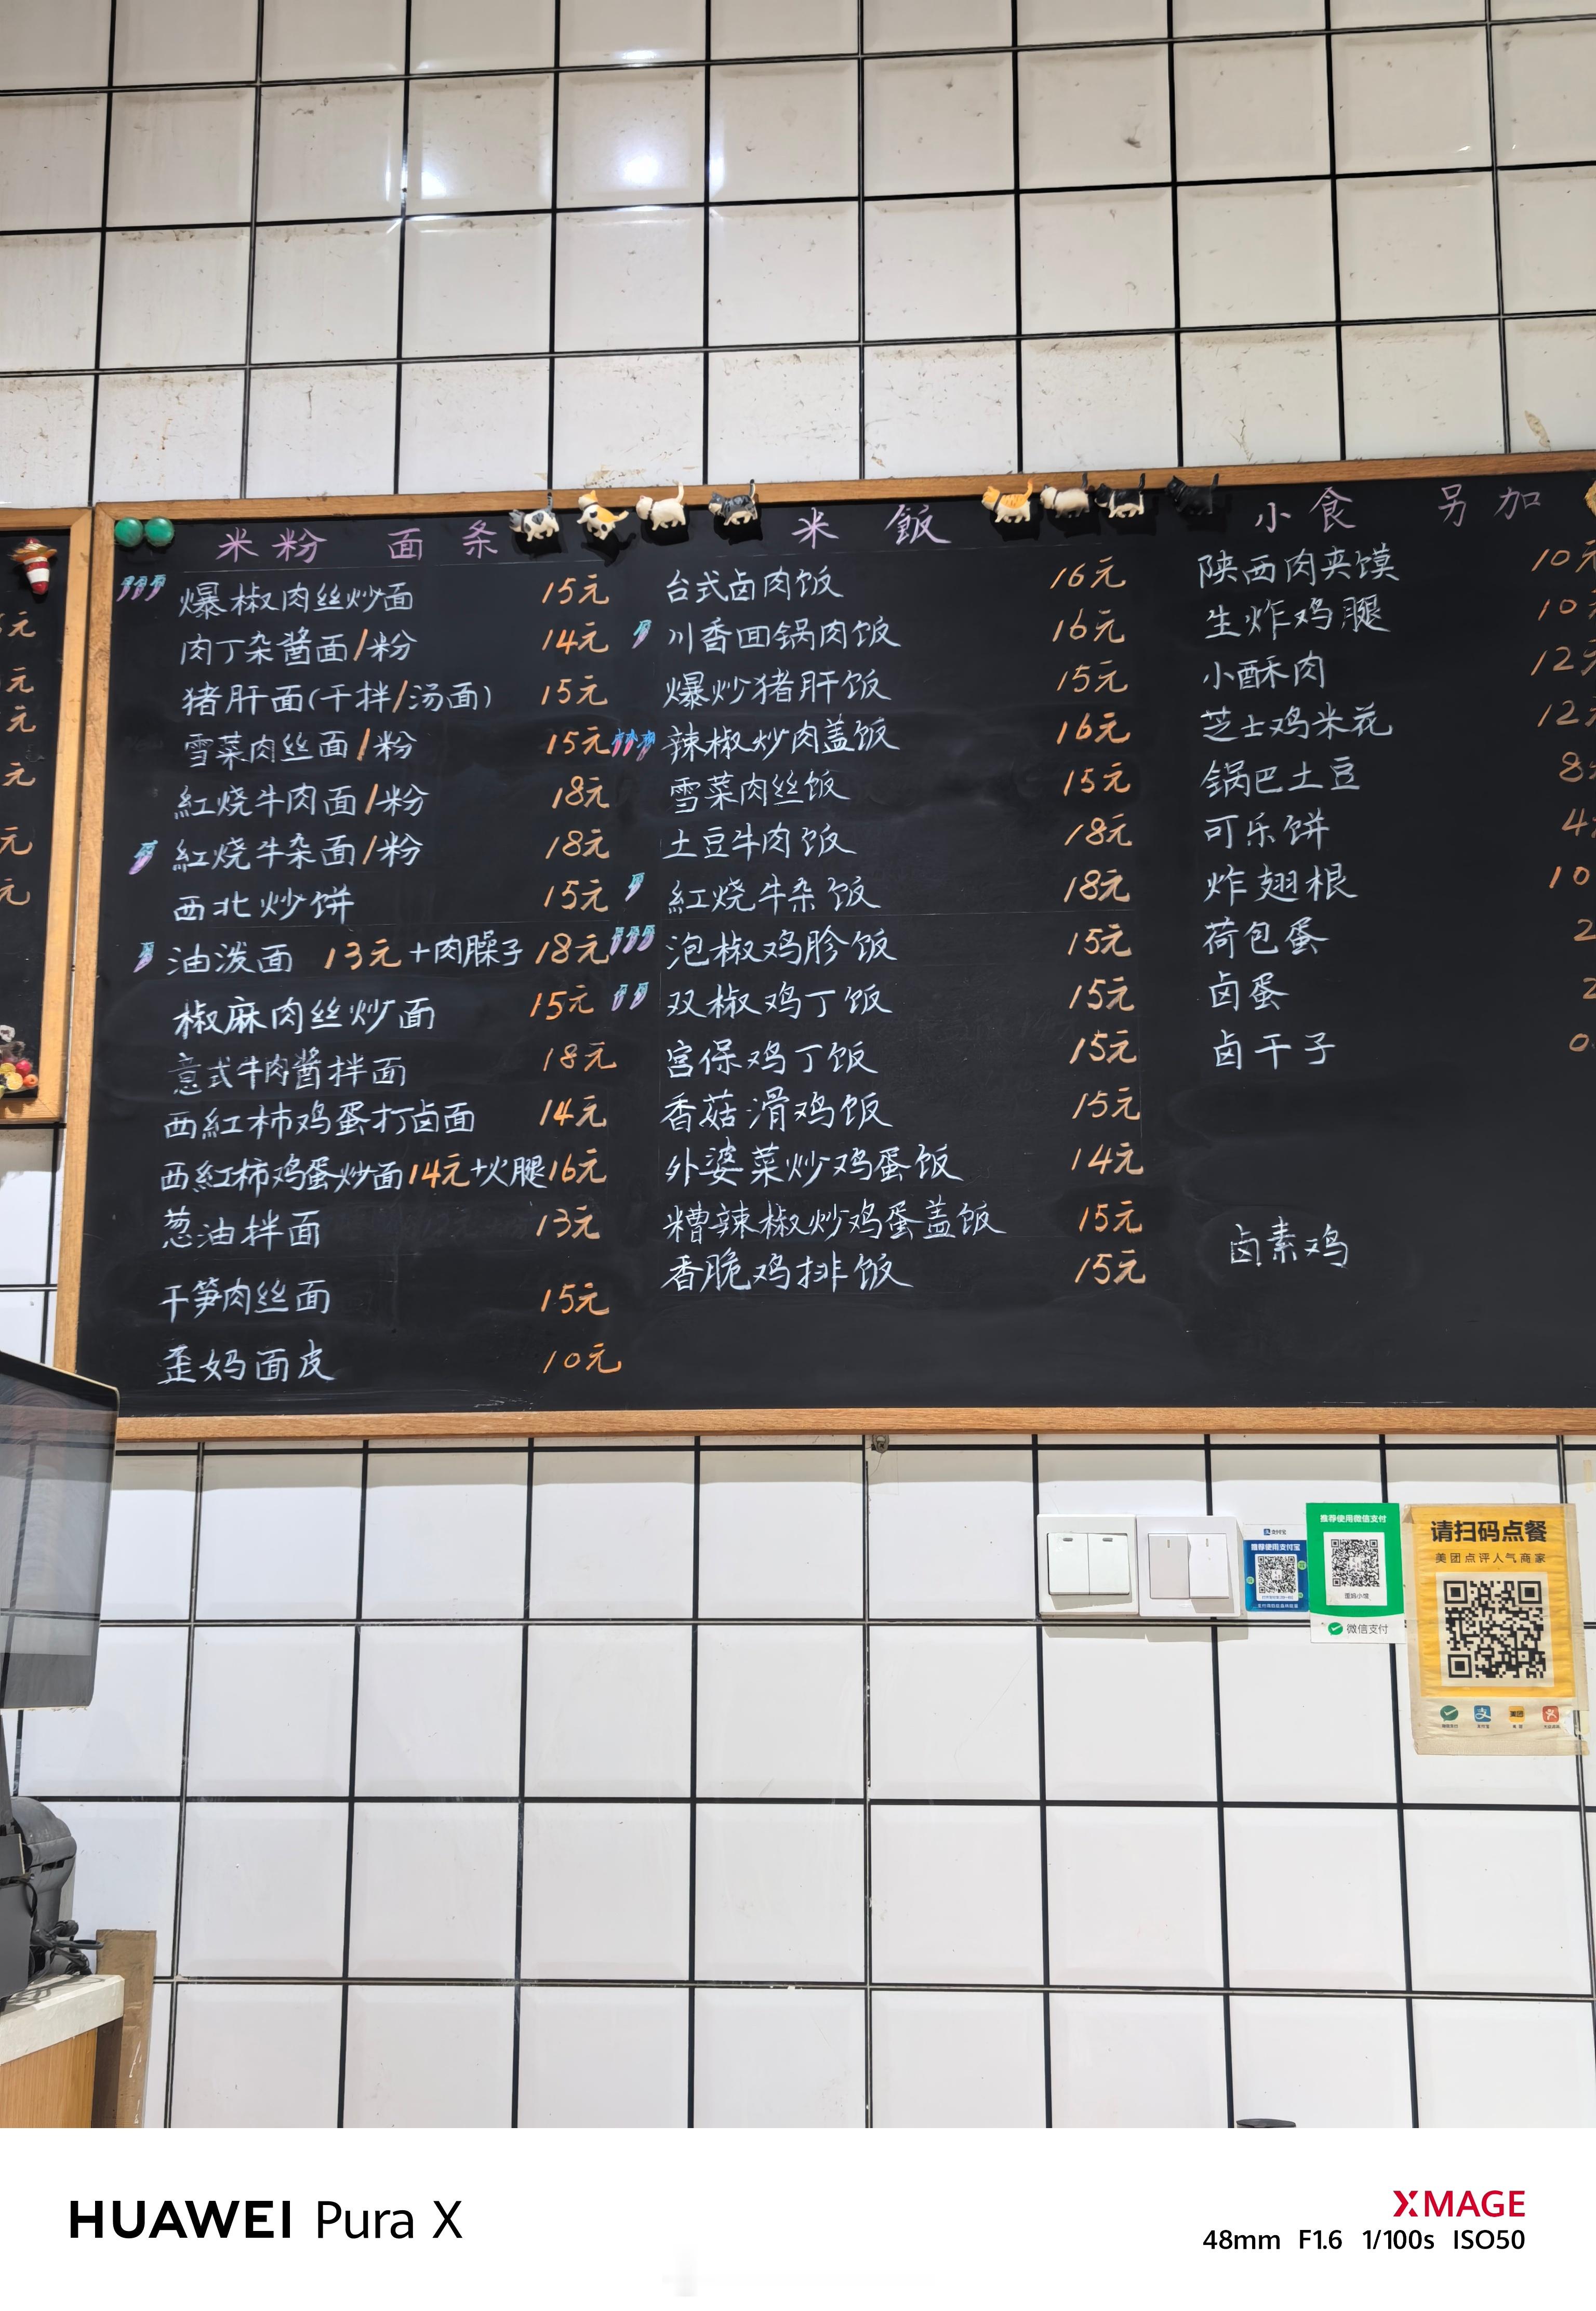 米粉 面条
爆椒肉丝炒面 15元
肉丁杂酱面/粉 14元
猪肝面(干拌/汤面) 15元
雪菜肉丝面/粉 15元
紅烧牛肉面/粉 18元
紅烧牛杂面/粉 18元
西北炒饼 15元
油泼面 13元+肉臊子 18元
椒麻肉丝炒面 15元
意式牛肉酱拌面 18元
西紅柿鸡蛋打卤面 14元
西紅柿鸡蛋炒面14元+火腿16元
葱油拌面 13元
干笋肉丝面 15元
歪妈面皮 10元
米 飯
台式卤肉饭 16元
川香回锅肉饭 16元
爆炒猪肝饭 15元
辣椒炒肉盖饭 16元
雪菜肉丝饭 15元
土豆牛肉饭 18元
紅烧牛杂饭 18元
泡椒鸡胗饭 15元
双椒鸡丁饭 15元
宫保鸡丁饭 15元
香菇滑鸡饭 15元
外婆菜炒鸡蛋饭 14元
糟辣椒炒鸡蛋盖饭 15元
香脆鸡排饭 15元
小食 另加
陕西肉夹馍 10元
生炸鸡腿 10
小酥肉 12
芝士鸡米花 12
锅巴土豆 8
可乐饼 4
炸翅根 10
荷包蛋 2
卤蛋 2
卤干子 0.
卤素鸡
支付宝
推荐使用支付宝
推荐使用微信支付
歪妈小馆
微信支付
请扫码点餐
美团点评人气商家
美团
HUAWEI Pura X
XMAGE
48mm F1.6 1/100s ISO50